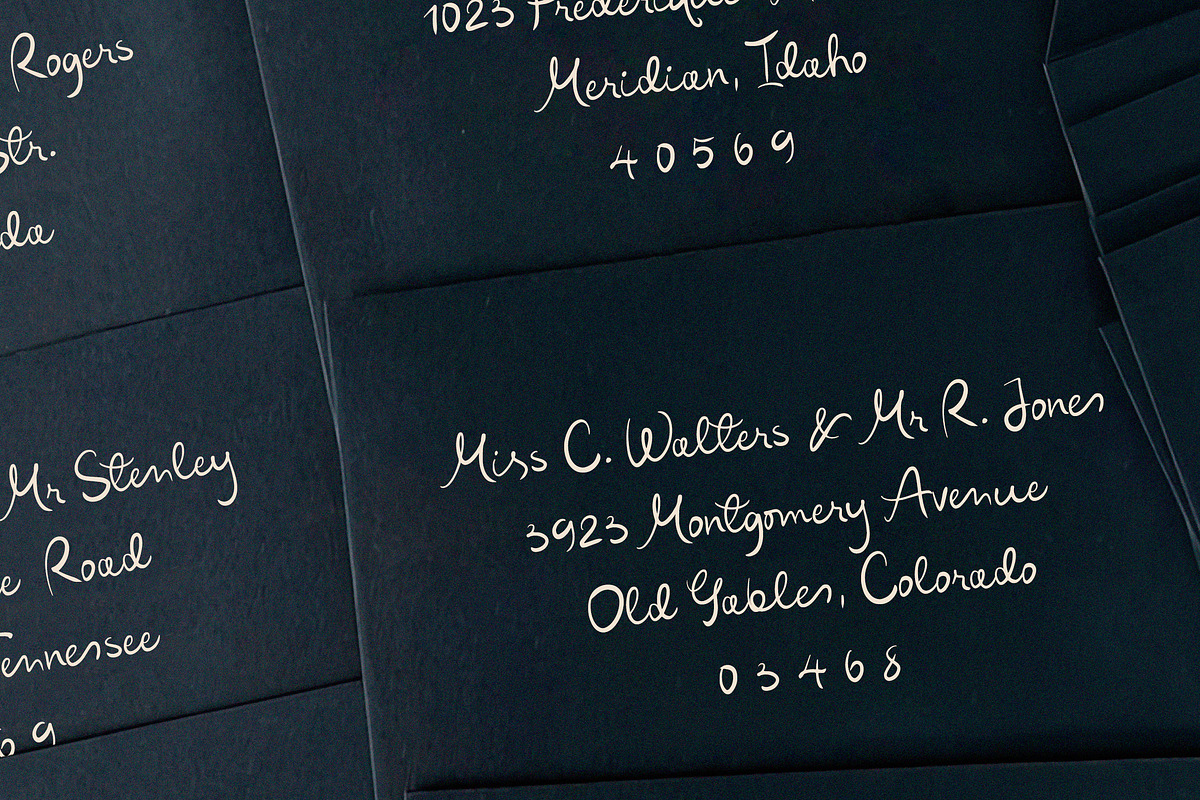 Rogers
Str.
1023
Meridian, Idaho
40569
Mr Stenley
Road
Tennessee
9
Miss C. Walters & Mr R. Jones
3923 Montgomery Avenue
Old Gables, Colorado
03468